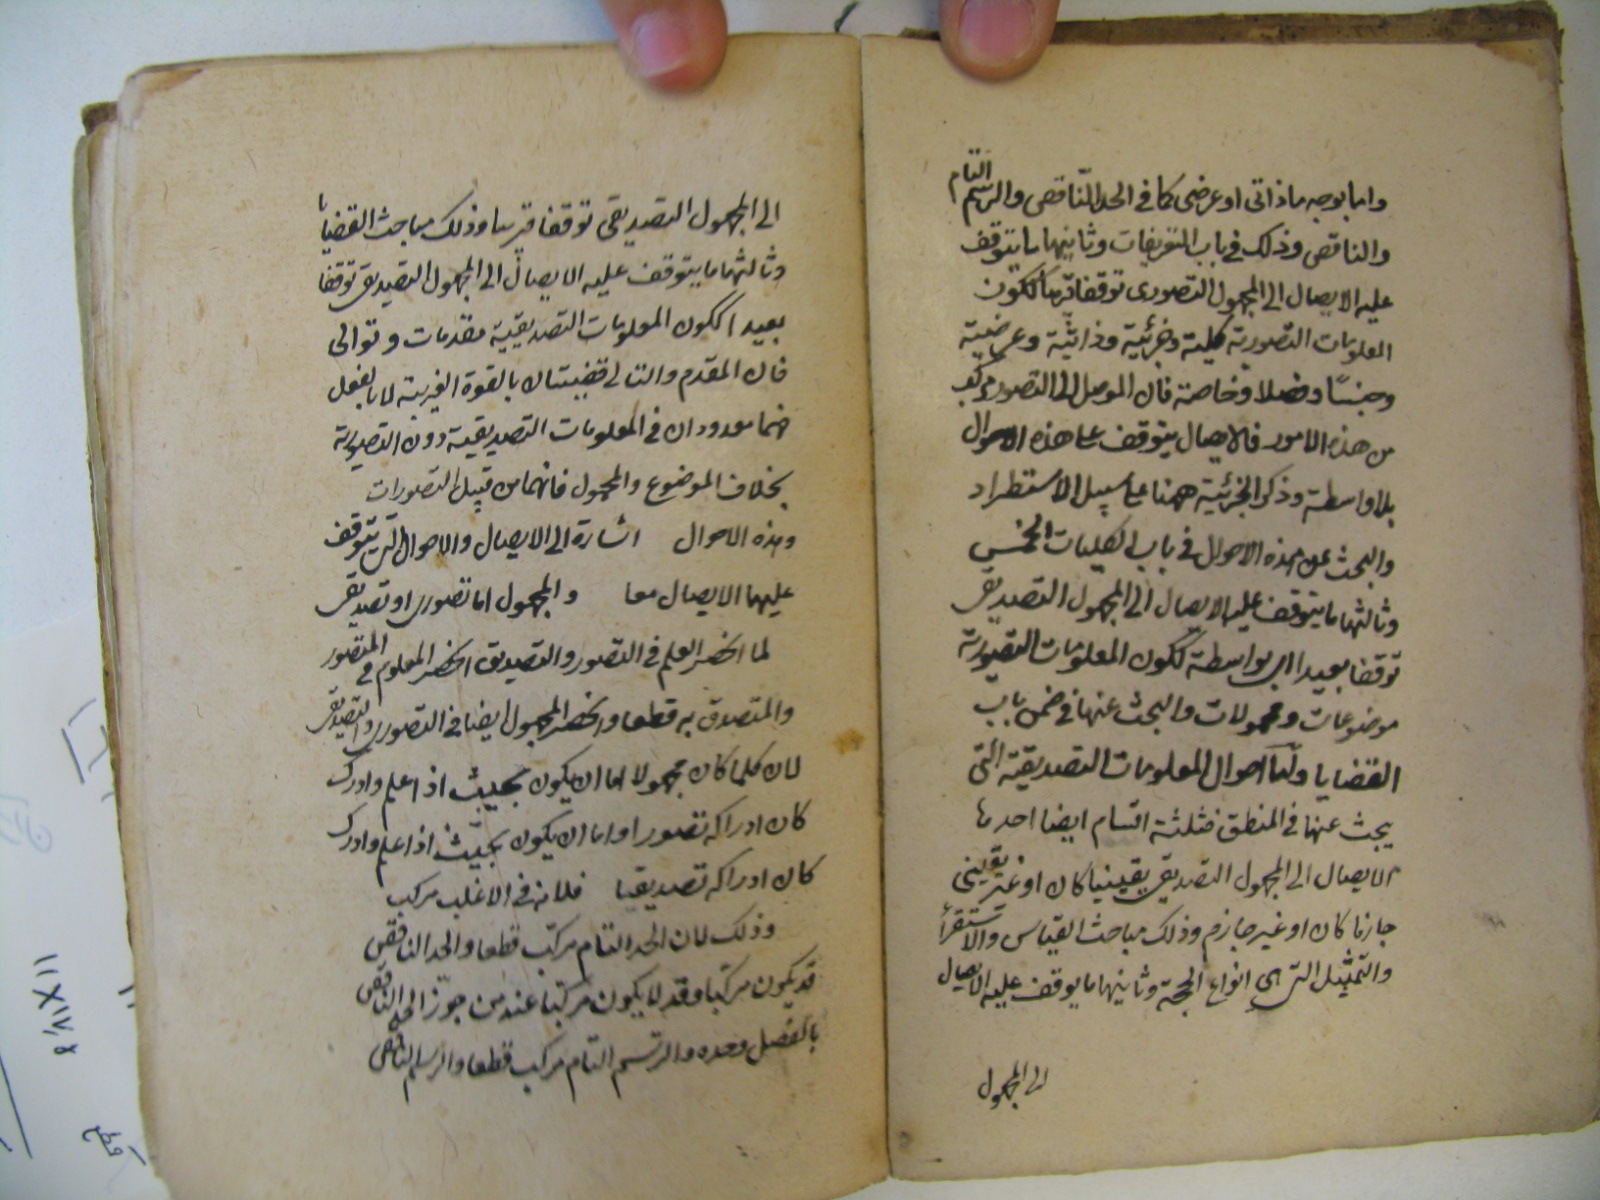 واما بوجه ما ذاتى او عرضى كما فى الحد الناقص والرسم التام
والناقص وذلك فى باب التعريفات وثانيها ما يتوقف
عليه الايصال الى المجهول التصورى توقفا قريبا ككون
المعلومات التصورية كلية وجزئية وذاتية وعرضية
وجنسا وفصلا وخاصة فان الموصل الى التصور مركب
من هذه الامور فالايصال يتوقف على هذه الاحوال
بلا واسطة وذكر الجزئية ههنا على سبيل الاستطراد
والبحث عن هذه الاحوال فى باب الكليات الخمس
وثالثها ما يتوقف عليه الايصال الى المجهول التصديقى
توقفا بعيدا اى بواسطة ككون المعلومات التصورية
موضوعات ومحمولات والبحث عنها فى ضمن باب
القضايا واما احوال المعلومات التصديقية التى
يبحث عنها فى المنطق فثلثة اقسام ايضا احدها
الايصال الى المجهول التصديقى يقينيا كان او غير يقينى
جازما كان او غير جازم وذلك مباحث القياس والاستقراء
والتمثيل التى هى انواع الحجة وثانيها ما يوقف عليه الايصال
الى المجهول
الى المجهول التصديقى توقفا قريبا وذلك مباحث القضايا
وثالثها ما يتوقف عليه الايصال الى المجهول التصديقى توقفا
بعيدا ككون المعلومات التصديقية مقدمات وتوالى
فان المقدم والتالى قضيتان بالقوة القريبة لا بالفعل
فهما معدودان فى المعلومات التصديقية دون التصورية
بخلاف الموضوع والمحمول فانهما من قبيل التصورات
وهذه الاحوال اشارة الى الايصال والاحوال التى يتوقف
عليها الايصال معا والمجهول اما تصورى او تصديقى
لما انحصر العلم فى التصور والتصديق انحصر المعلوم فى المتصور
والمتصدق به قطعا وانحصر المجهول ايضا فى التصورى والتصديقى
لان كلما كان مجهولا اما ان يكون بحيث اذا علم وادرك
كان ادراكه تصورا واما ان يكون بحيث اذا علم وادرك
كان ادراكه تصديقيا فلانه فى الاغلب مركب
وذلك لان الحد التام مركب قطعا والحد الناقص
قد يكون مركبا وقد لا يكون مركبا عند من جوز الحد الناقص
بالفصل وحده والرسم التام مركب قطعا والرسم الناقص